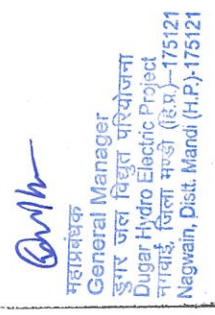 महाप्रबंधक
General Manager
डुगर जल विद्युत परियोजना
Dugar Hydro Electric Project
नगवाई, जिला मण्डी (हि.प्र.)–175121
Nagwain, Distt. Mandi (H.P.)-175121